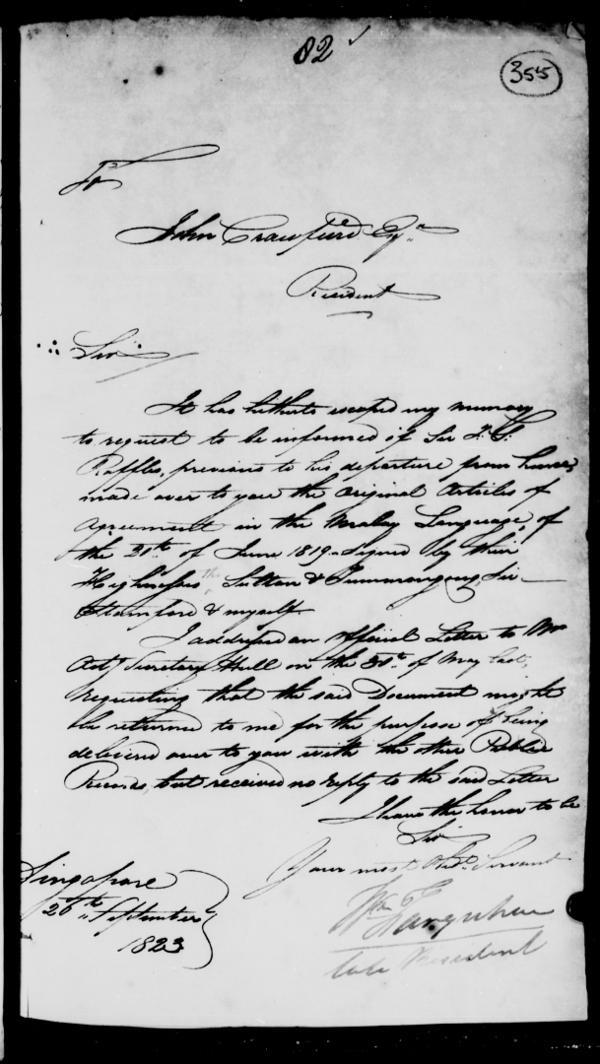 82
355
To
John Crawfurd Esqr.
Resident
Sir
It has hitherto escaped my memory
to request to be informed if Sir T. S.
Raffles, previous to his departure from hence,
made over to you the Original Articles of
Agreement in the Malay Language, of
the of June 1819 - Signed by their
Highnesses the Sultan & Tummongong, Sir
Stamford & myself.
I addressed an Official Letter to Mr
Actg Secretary Hull on the 30th. of May last,
requesting that the said Document might
be returned to me for the purpose of being
delivered over to you with the other Public
Records, but received no reply to the said Letter
I have the honor to be
Sir
Your most Obedt. Servant
Wm Farquhar
late Resident
Singapore
26th September
1823